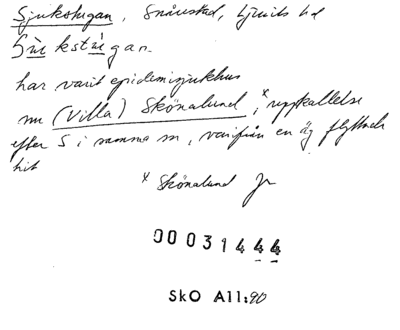 Sjukstugan, Snårestad, Ljunits hd
Sju̇̀kstu̇́gan.
har varit epidemisjukhus
nu (Villa) Skönalund, x uppkallelse
efter S i samma sn, varifrån en äg flyttade
hit
x Skönalund
00031444
SkO All:90